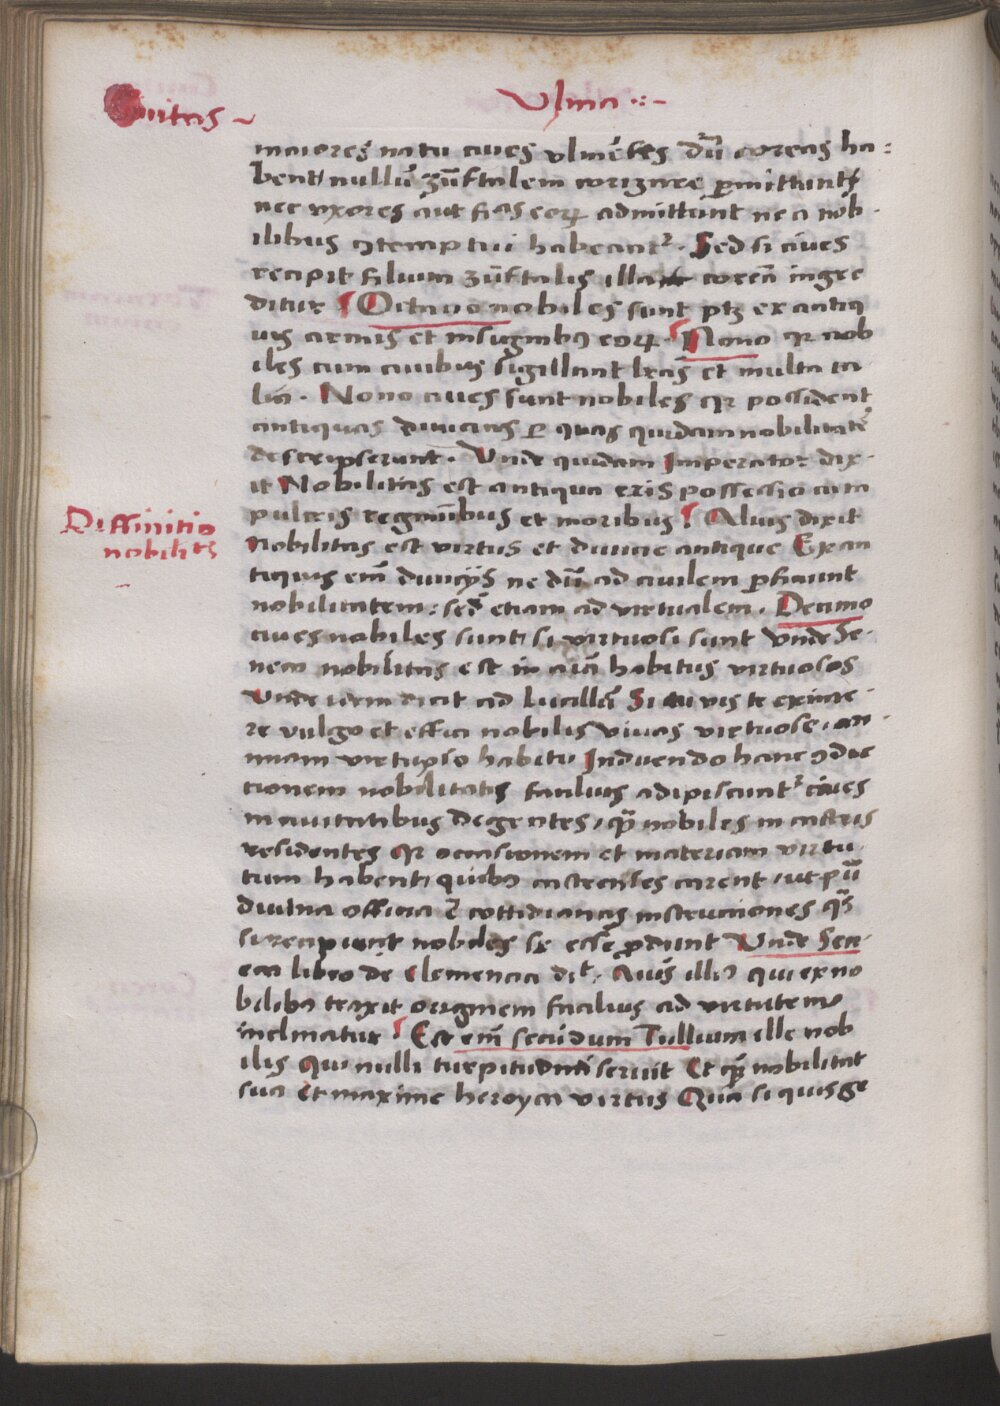 Ciuitas ~
Vlma
maiores natu ciues vlmētes dū coreas ha:
bent nullū zūftalem corizare ꝑmittunt
nec vxores aut fias eoꝝ admittunt ne a nob
ilibus ꝯtemptui habeantʳ. Sed si ciues
recipit filiam zūftalis illa coreā ingre
ditur Octauo nobiles sunt ptꝫ ex antiq
uis armis et insignibꝰ eoꝝ. Nono qꝛ nob
iles cum ciuibus sigillant lrās et multa ta
lia. Nono ciues sunt nobiles qꝛ possident
antiquas diuicias ꝑ quas quidam nobilitatē
descripserunt. Vnde quidam Imperator dix
it Nobilitas est antiqua eris possessio cum
pulcris regminibus et moribus Alius dixit
Nobilitas est virtus et diuicie antique Ex an
tiquis em̄ diuicijs ne dū ad ciuilem ꝑficiunt
nobilitatem: sed etiam ad virtualem. Decimo
ciues nobiles sunt si virtuosi sunt Vnde Se
neca nobilitas est in aīa habitus virtuosos
Vnde idem dicit ad Lucillū Si tu vis te exime
re vulgo et effici nobilis viuas virtuose. an
imam virtuoso habitu Induendo hanc ꝯdic
tionem nobilitatis facilius adipiscuntʳ ciues
in ciuitatibus degentes, qm̄ nobiles in castris
residentes qꝛ occasionem et materiam virtu
tum habent, quibꝰ castrenses carent, ut pū
diuina officia & cottidianas instructiones qs̄
si recipiunt nobiles se essē ꝓdunt Vnde Sen
eca libro de Clemencia dit. Animꝰ illiꝰ qui ex no
bilibꝰ traxit originem facilius ad virtutem
inclinatur Est em̄ secundum Tullium ille nob
ilis Qui nulli turpitudini seruit Et qm̄ nobilitat
sua et maxime heroyca virtus Qua si quis ge
Diffinitio
nobilitˢ